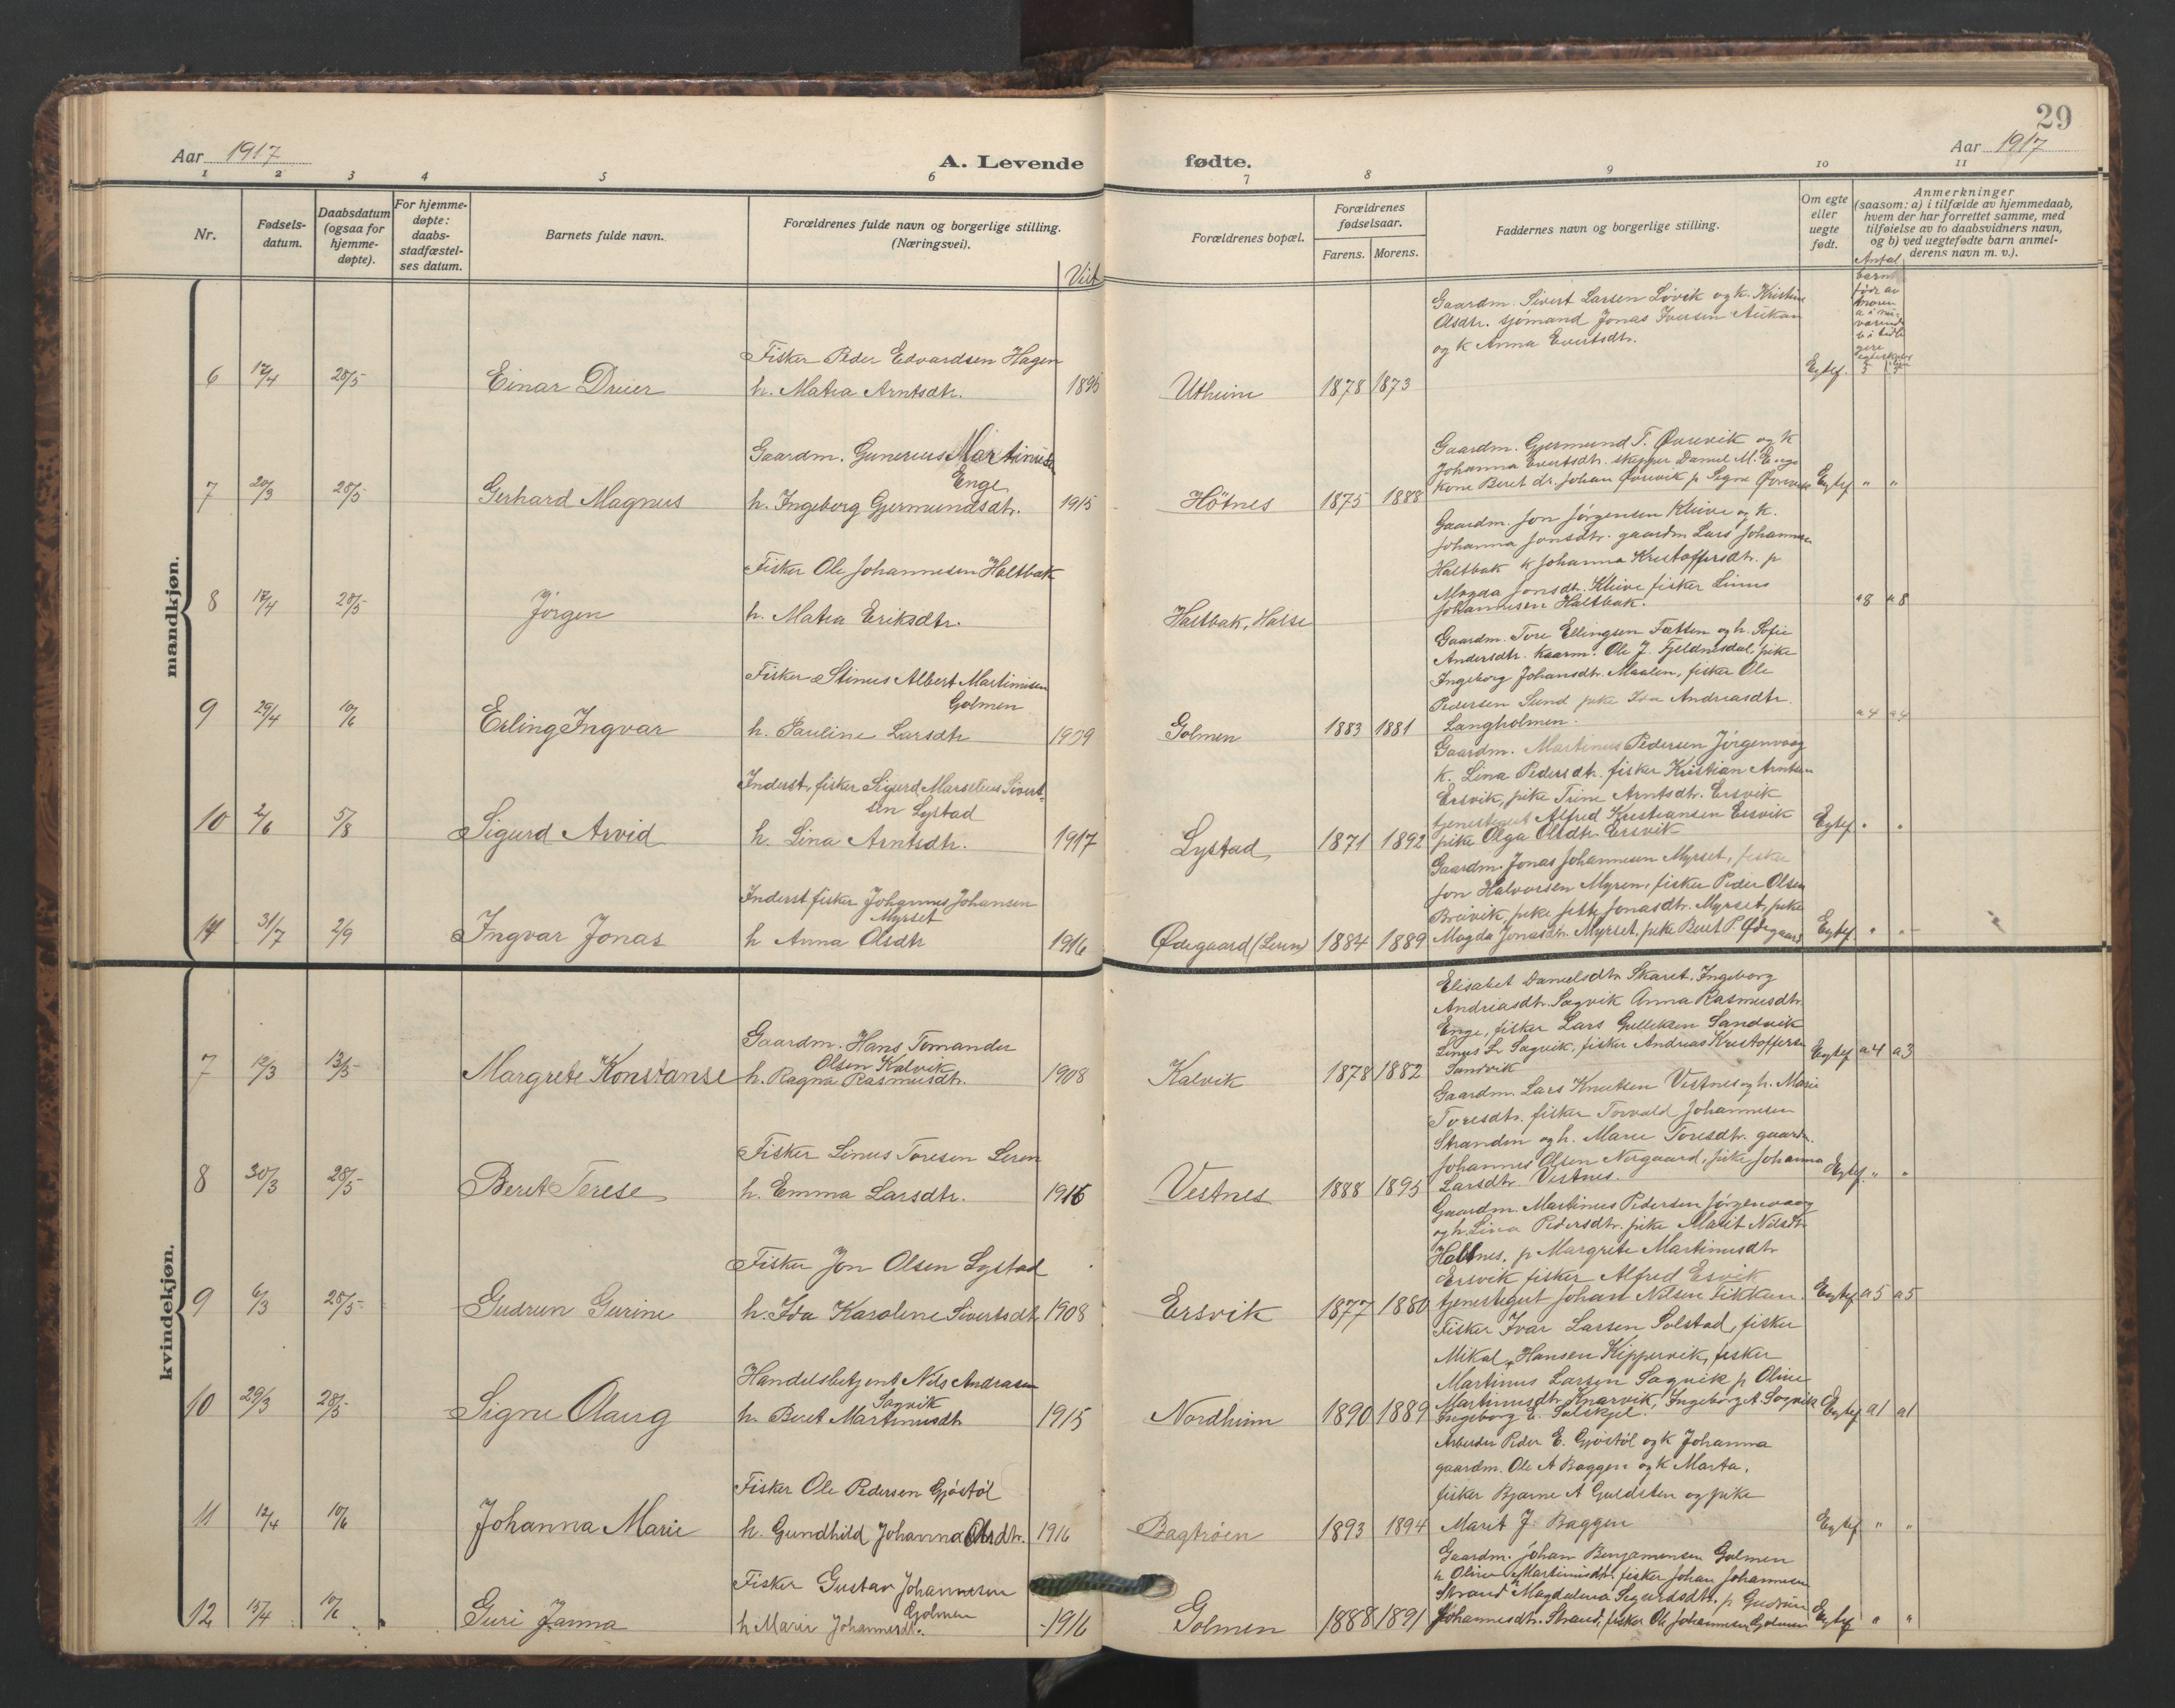 29
Aar 1917
A. Levende fødte.
Aar 1917
1 2 3 4 5 6 7 8 9 10 11
Nr.
Fødsels-
datum.
Daabsdatum
(ogsaa for
hjemme-
døpte).
For hjemme-
døpte:
daabs-
stadfæstel-
ses datum.
Barnets fulde navn.
Forældrenes fulde navn og borgerlige stilling.
(Næringsvei).
Viet
Forældrenes bopæl.
Forældrenes
fødselsaar.
Farens. Morens.
Faddernes navn og borgerlige stilling.
Om egte
eller
uegte
født.
Anmerkninger
(saasom: a) i tilfælde av hjemmedaab,
hvem der har forrettet samme, med
tilføielse av to daabsvidners navn,
og b) ved uegtefødte barn anmel-
derens navn m. v.).
Antal
barn
født av
moren
mandkjøn.
6 17/4 28/5 Einar Dreier
Fisker Peder Edvardsen Hagen
h. Matea Arntsdtr. 1895
Utheim 1878 1873
Gaardm. Sivert Larsen Løvik og k. Kristine
Olsdtr. sjömand Jonas Iversen Aukan
og k Anna Evertsdtr.
Egtef. 5
7 20/3 28/5 Gerhard Magnus
Gaardm. Gunerius Martinusen
Enge
h. Ingeborg Gjermundsdtr. 1915
Hötnes 1875 1888
Gaardm. Gjermund T. Øvrevik og k
Johanna Evertsdtr. skipper Daniel M. Enge
kone Beret dr. Johan Øvrevik p Signe Øvrevik
Egtef " "
8 17/4 28/5 Jörgen
Fisker Ole Johannesen Haltbak
h. Matea Eriksdtr.
Haltbak, Halse
Gaardm. Jon Jørgensen Kleive og k.
Johanna Jonsdtr. gaardm Lars Johannesen
Haltbak k Johanna Kristoffersdtr. p
Magda Jonsdtr. Kleive fisker Linus
Johannesen Haltbak.
a8 a8
9 29/4 10/6 Erling Ingvar
Fisker Stinus Albert Martinusen
Golmen
h. Pauline Larsdtr 1909
Golmen 1883 1881
Gaardm. Tore Ellingsen Fætten og h. Sofie
Andersdtr. kaarm. Ole J. Fjeldnesdal, pike
Ingeborg Johansdtr. Maalen, fisker Ole
Pedersen Sund pike Ida Andreasdtr
Langholmen.
a4 a4
10 2/6 5/8 Sigurd Arvid
Inderst. fisker Sigurd Marselius Sivert-
sen Lystad
h. Lina Arntsdtr. 1917
Lystad 1871 1892
Gaardm. Martinus Pedersen Jörgenvaag
k. Lina Pedersdtr. fisker Kristian Arntsen
Ersvik, pike Trine Arntsdtr. Ersvik
tjenestegut Alfred Kristiansen Ersvik
pike Olga Olsdtr. Ersvik
Egtef " "
11 31/7 2/9 Ingvar Jonas
Inderst fisker Johannes Johansen
Myrset
h Anna Olsdtr 1916
Ødegaard (Leren) 1884 1889
Gaardm. Jonas Johannesen Myrset, fisker
Jon Halvorsen Myren, fisker Peder Olsen
Breivik, pike Jette Jonasdtr. Myrset, pike
Magda Jonasdtr. Myrset. pike Beret P. Ødegaard
Egtef " "
kvindekjøn.
7 12/3 13/5 Margrete Konstanse
Gaardm. Hans Tomander
Olsen Kalvik
h. Ragna Rasmusdtr. 1908
Kalvik 1878 1882
Elisabet Danielsdtr Skaret. Ingeborg
Andreasdtr. Sagvik Anna Rasmusdtr.
Enge, fisker Lars Gulliksen Sandvik
Linus L. Sagvik, fisker Andreas Kristoffersen
Sandvik
Egtef a4 a3
8 30/3 28/5 Beret Terese
Fisker Linus Toresen Leren
h. Emma Larsdtr. 1916
Vestnes 1888 1895
Gaardm. Lars Knutsen Vestnes og h. Marie
Toresdtr. fisker Torvald Johannesen
Strandm og h. Marie Toresdtr. gaardm.
Johannes Olsen Norgaard, pike Johanna
Larsdtr. Vestnes.
Egtef. " "
9 6/3 28/5 Gudrun Gurine
Fisker Jon Olsen Lystad
h. Ida Karoline Sivertsdtr 1908
Ersvik 1877 1880
Gaardm. Martinus Pedersen Jörgenvaag
og h. Lina Pedersdtr. pike Marit Nilsdtr
Hallnes. p Margrete Martinusdtr
Ersvik fisker Alfred Esvik
tjenestegut Johan Nilsen Fikkan
Egtef a5 a5
10 29/3 28/5 Signe Olaug
Handelsbetjent Nils Andrasen
Sagvik
h. Beret Martinusdtr 1915
Nordheim 1890 1889
Fisker Ivar Larsen Solstad, fisker
Mikal Hansen Kippervik, fisker
Martinus Larsen Sagvik p Oline
Martinusdtr. Knarvik, Ingeborg A. Sagvik
Ingeborg L. Solskjel.
Egtef a1 a1
11 12/4 10/6 Johanna Marie
Fisker Ole Pedersen Gjöstöl
h. Gundhild Johanna Olsdtr. 1916
Bagtröen 1893 1894
Arbeider Peder E. Gjöstöl og k Johanna
gaardm. Ole A Baggen og k Marta,
fisker Bjarne A Guldsten og pike
Marit J. Baggen
Egtef " "
12 15/4 10/6 Guri Janna
Fisker Gustav Johannesen
Golmen
h Marie Johannesdtr. 1916
Golmen 1888 1891
Gaardm. Johan Benjamensen Golmen
h Oline Martinusdtr. fisker Johan Johannesen
Strand Magdalena Sigurdsdtr. p Gudrun
Johannesdtr. Strand, fisker Ole Johannesen Golmen
Egtef " "